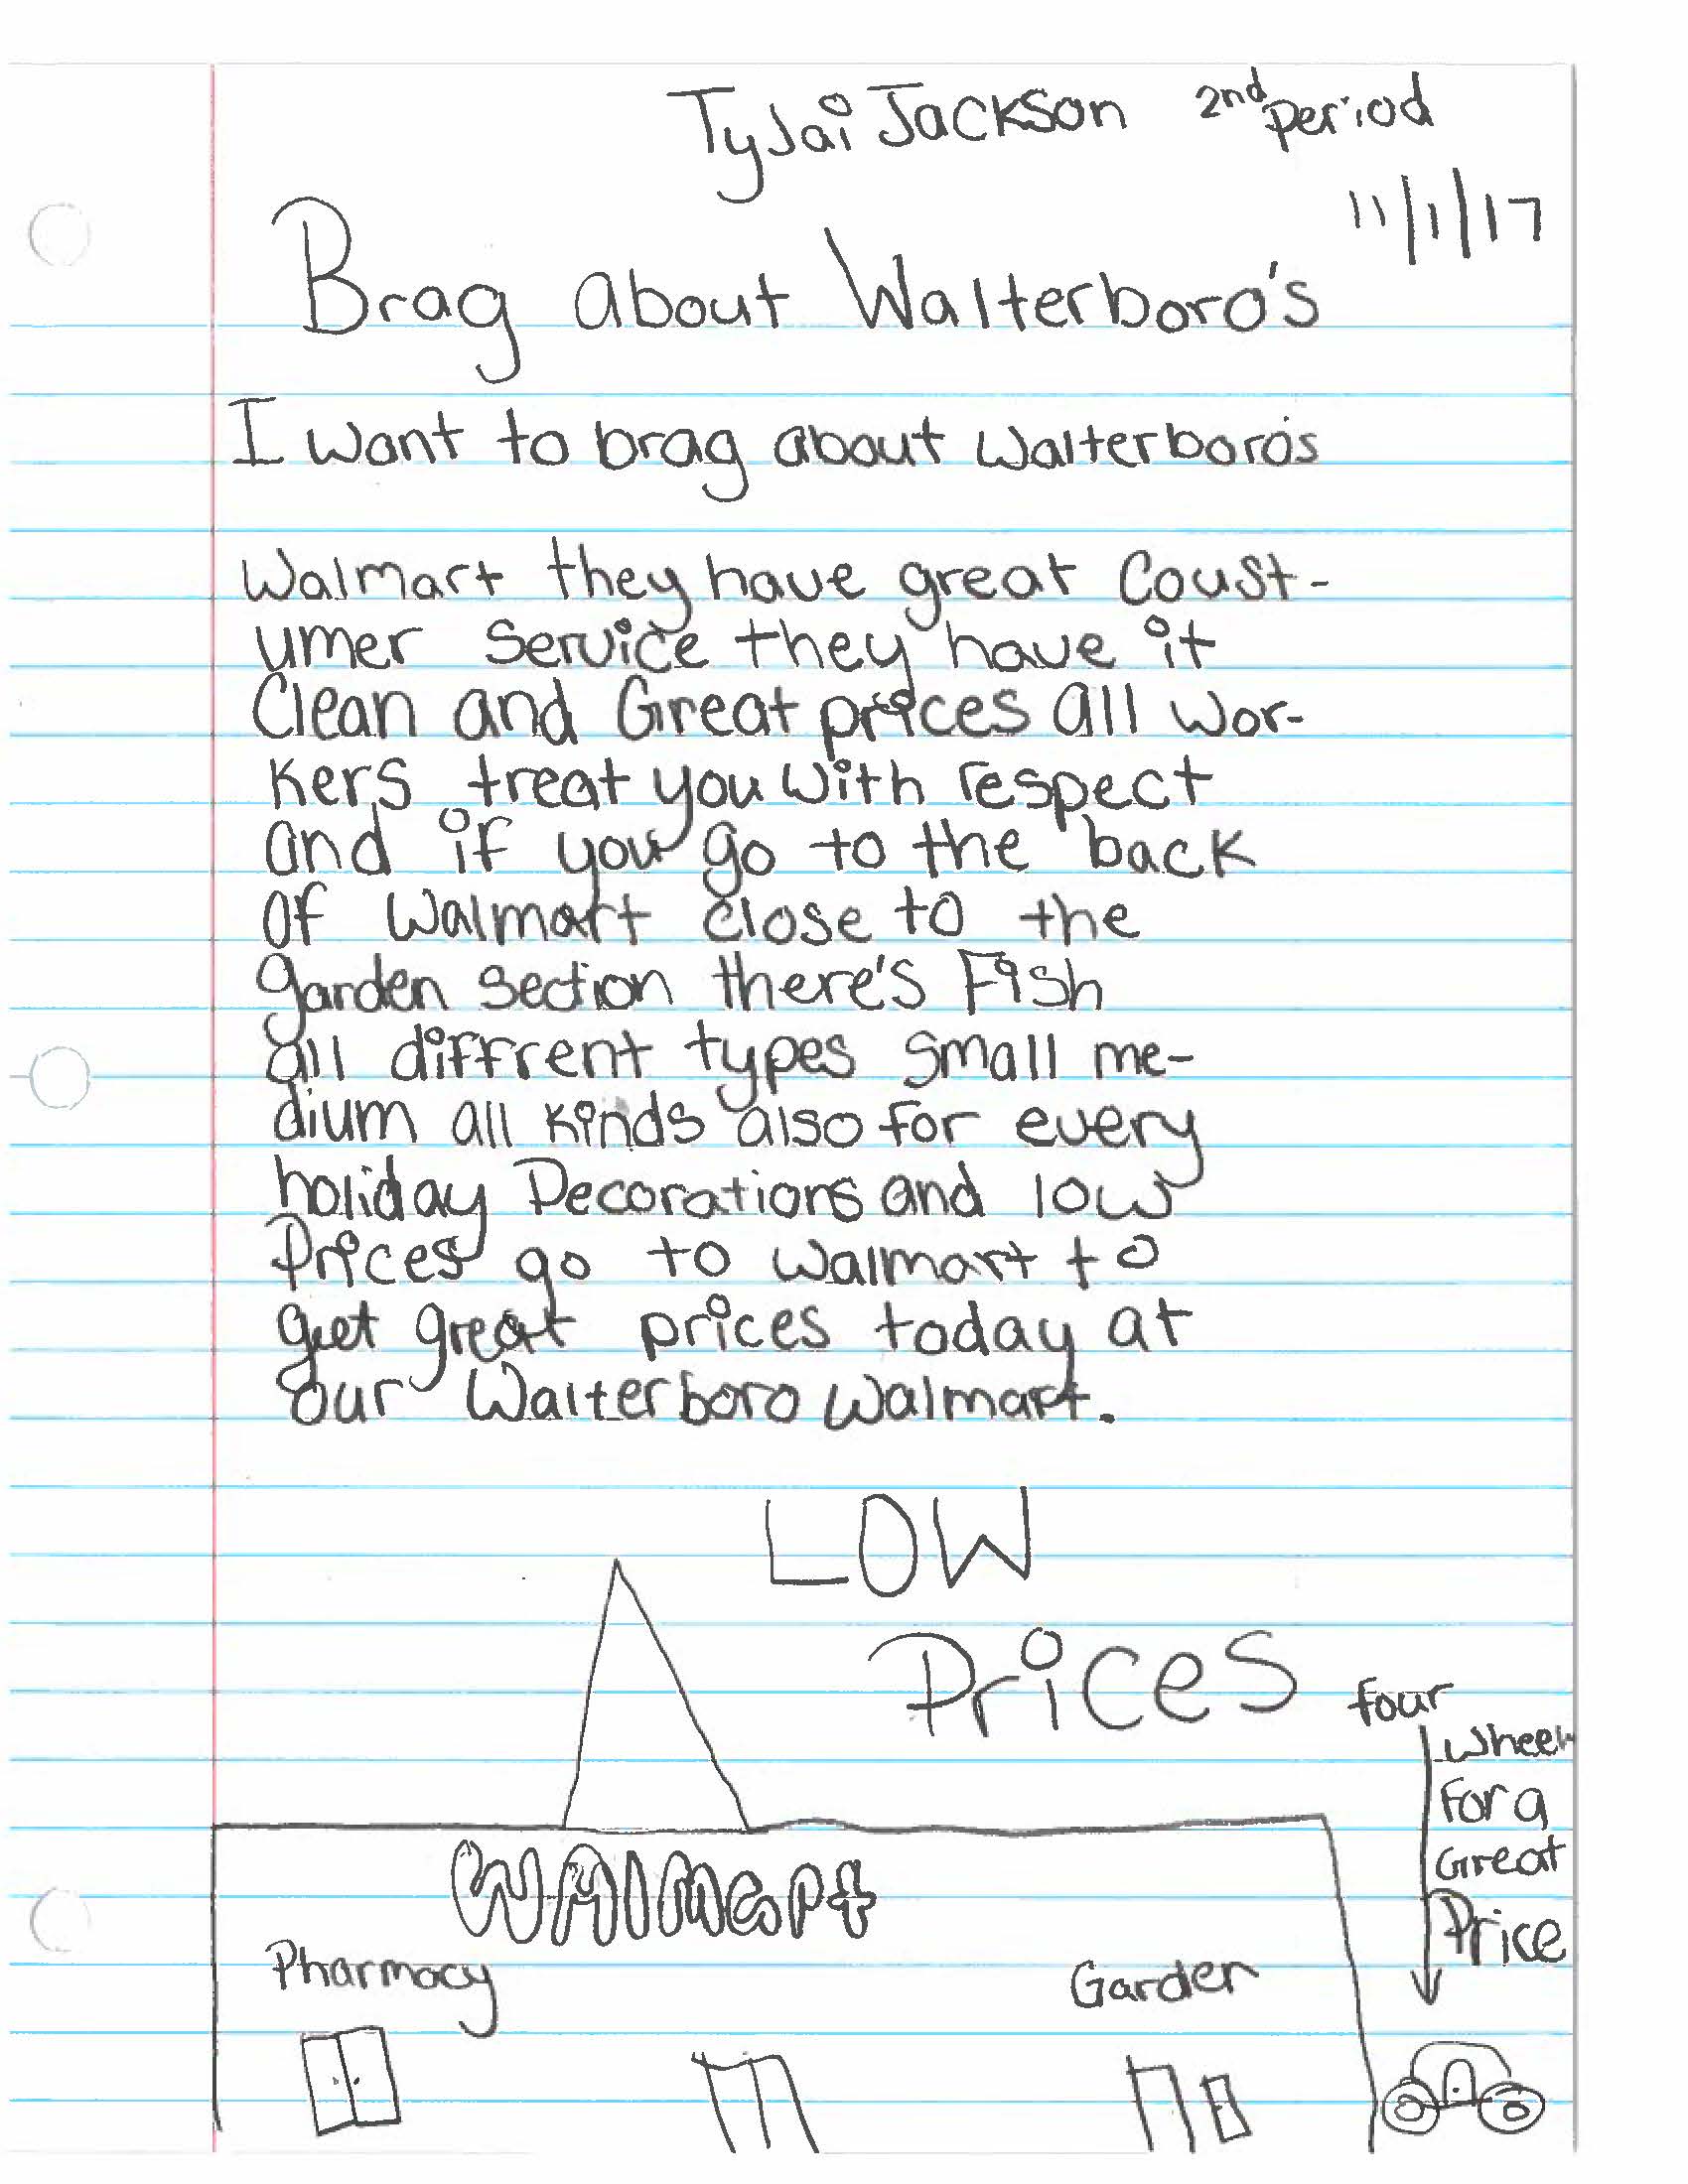 TyJai Jackson 2nd period
11/1/17
Brag about Walterboro's
I want to brag about Walterboro's
Walmart they have great Coust-
umer Service they have it
Clean and Great prices all wor-
kers treat you with respect
and if you go to the back
of Walmart close to the
garden section there's Fish
all diffrent types small me-
dium all kinds also for every
holiday Decorations and low
Prices go to Walmart to
get great prices today at
our Walterboro Walmart.
LOW
Prices
four
wheeler
For a
Great
Price
WAlmart
Pharmacy
Garden